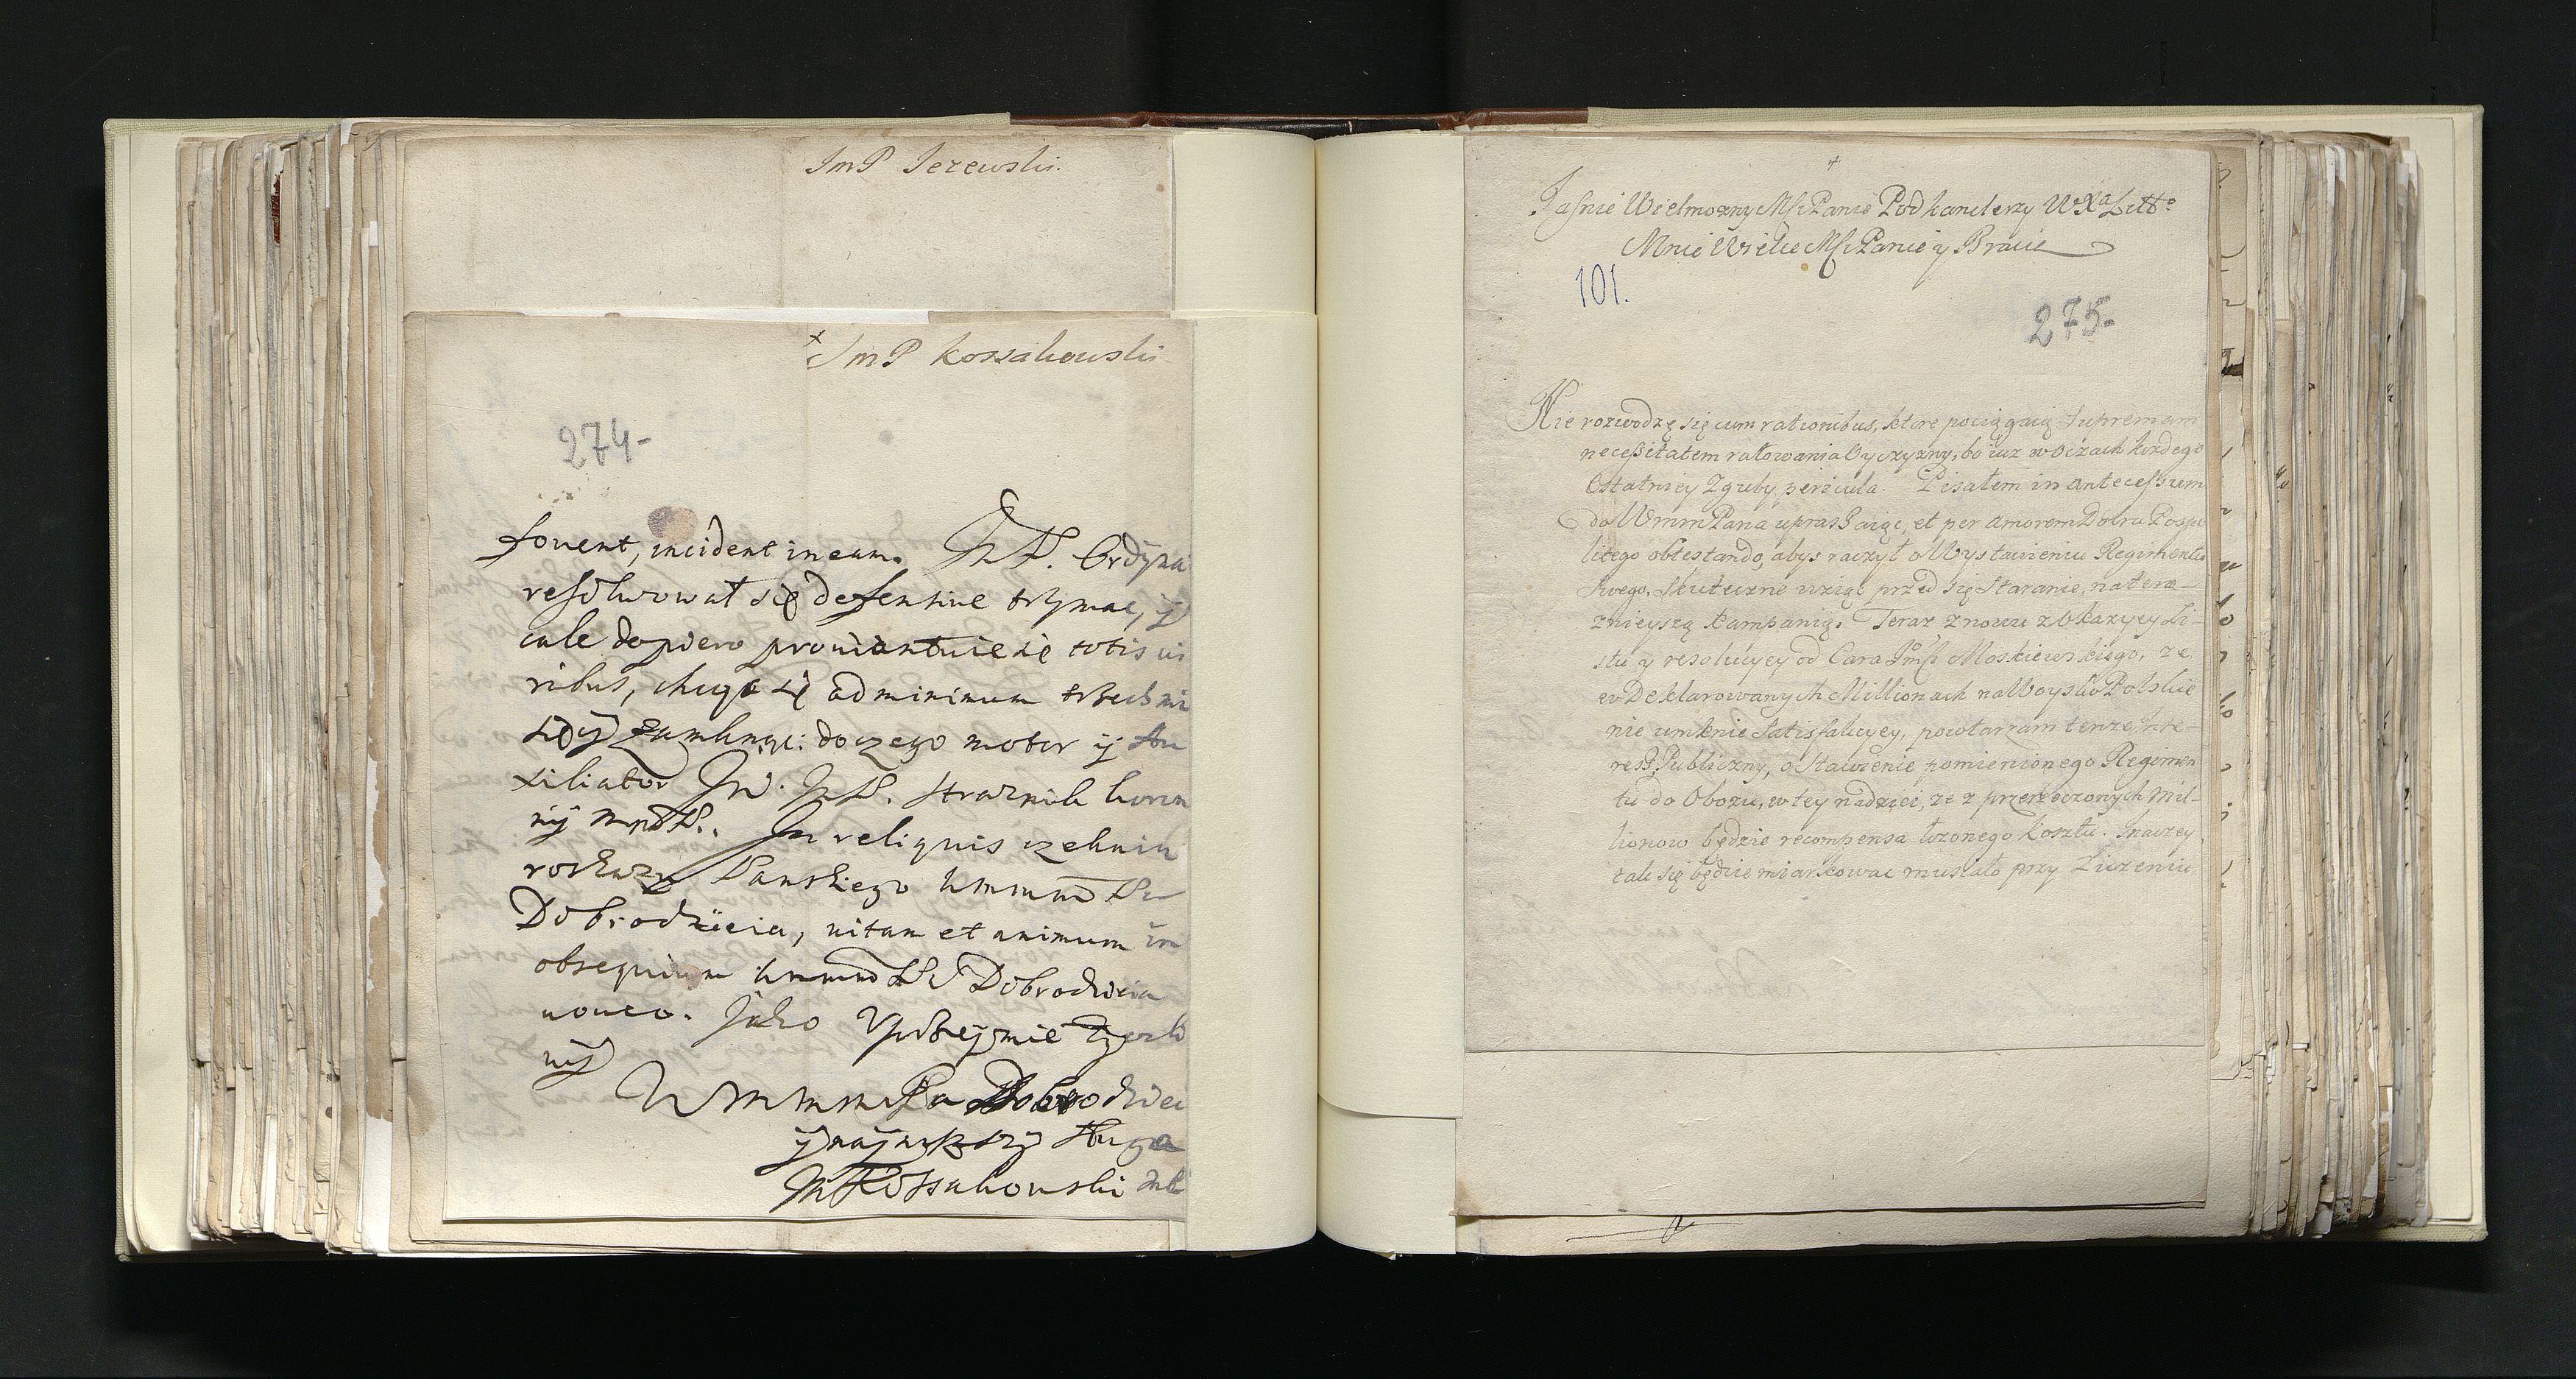 JmP Jezewski.
JmP Kossakowski
274-
fovent, incident in eam. JmP. Ordyna
resolwował się defensive trzymac, ÿ
cale dopiero prowiantuie się totis vi
ribus, chcąc się ad minimum trzech mie
sięcy zamknąc: do czego motor ÿ Au
xiliator JW. JmP. Straznik koron
nÿ mmP. In reliquis czekaiąc
roskazu Panskiego WmmmPa
Dobrodzieia, vitam et animum in
obsequium WmmmPa Dobrodzieia
voveo. Jako Uprzeÿmie zyczli
wÿ
WmmmPa Dobrodziei
ÿ nayniższÿ sługa
MKossakowski mp
Jasnie Wielmozny Mści Panie Podkanclerzy WXa Litto
Mnie Wielce Mści Panie y Bracie
101.
275-
Nie rozwodzę się cum rationibus, ktore pociągaią Supremam
necessitatem ratowania Oyczyzny, bo iuz w oczach kozdego
Ostatniey Zguby pericula. Pisałem in antecessum
do WmmPana upraszaiąc, et per amorem Dobra Pospo
litego obtestando, abys raczył o Wystawieniu Regimentu
Swego, Skuteczne wziąć przed się Staranie, na tera-
znieyszą Kampanią. Teraz znowu z Okazyey Li-
stu y resolucyey od Cara Jmści Moskiewskiego, ze
w Deklarowanych Millionach na Woysko Polskie
nie umknie Satisfakcyey, powtarzam tenze Inte-
ress Publiczny, o Stawienie pomienionego Regimen
tu do Obozu, w tey nadziei, ze z przerzeczonych Mil-
lionow będzie recompensa łozonego Kosztu. Inaczey
tak się będzie miarkowac musiało przy Liczeniu